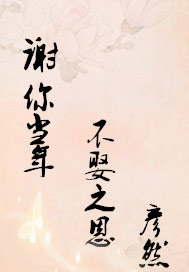 谢你当年
不娶之恩
彦然